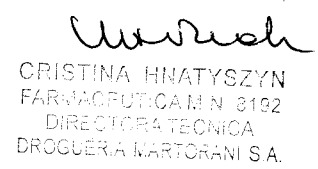 CRISTINA HNATYSZYN
FARMACEUTICA M N 8192
DIRECTORA TECNICA
DROGUERIA MARTORANI S.A.